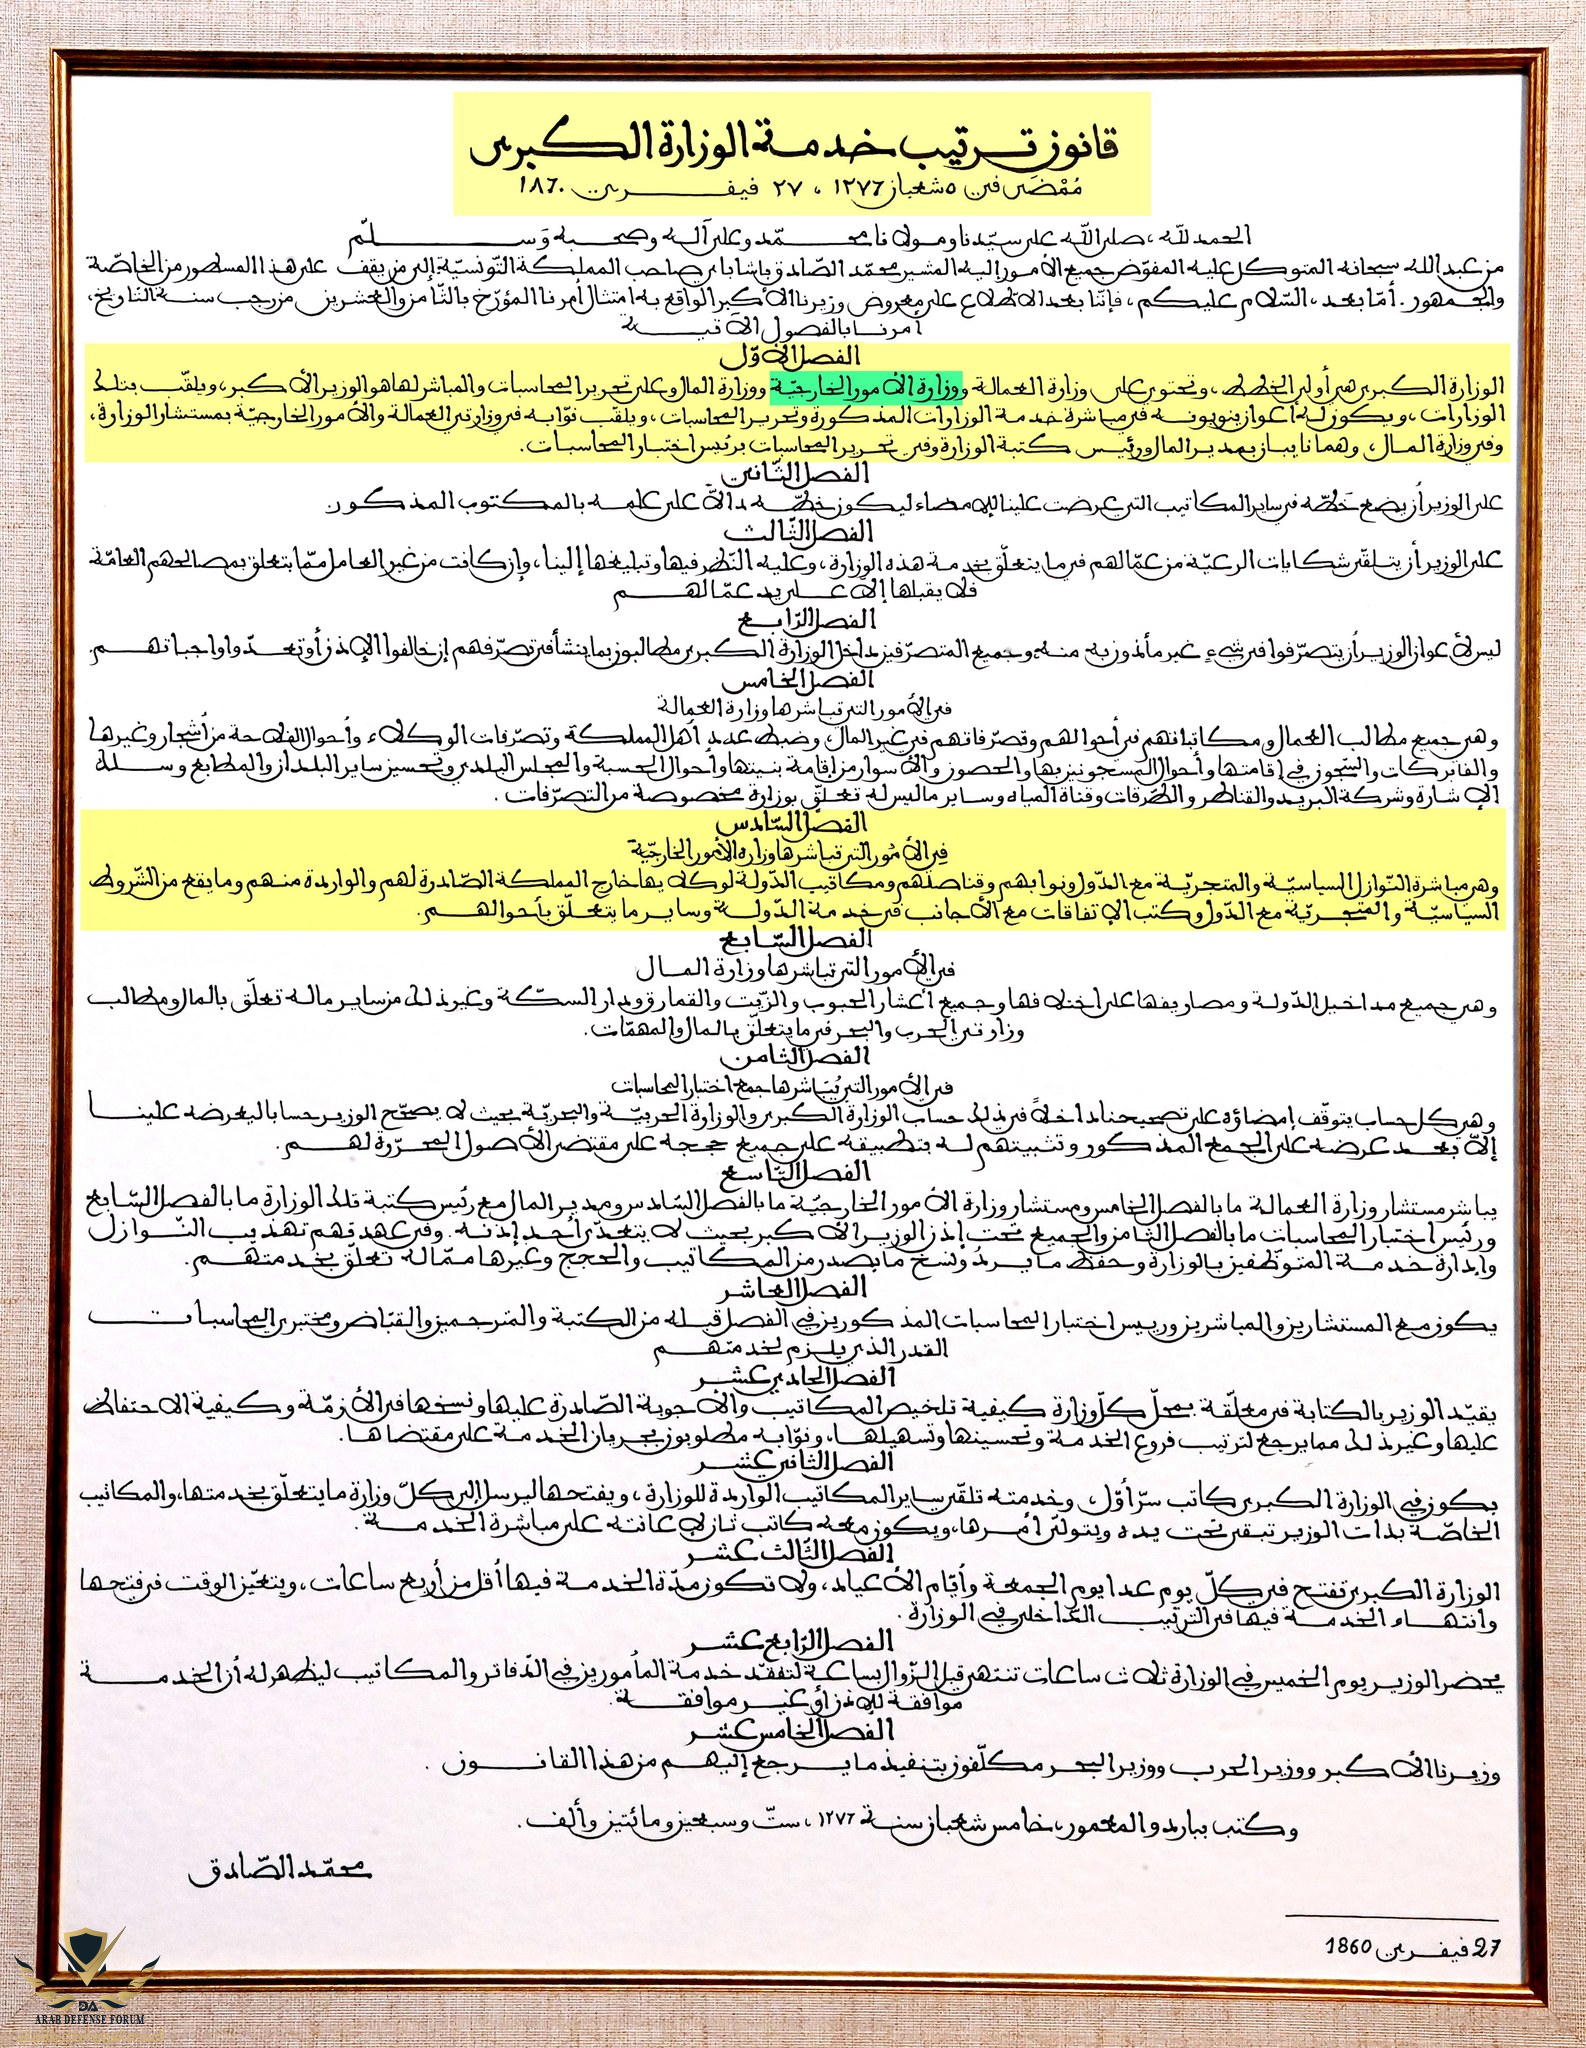 قانون ترتيب خدمة الوزارة الكبرى
مُمْضَى في ٥ شعبان ١٢٧٦ ، ٢٧ فيفري ١٨٦٠
الحمد للّه ، صلى اللّه على سيّدنا ومولانا محمّد وعلى آله وصحبه وَسلّم
من عبد الله سبحانه المتوكل عليه المفوّض جميع الأمور إليه المشير محمّد الصّادق باشا باي صاحب المملكة التّونسيّة إلى من يقف على هذا المسطور من الخاصّة
والجمهور . أمّا بعد ، السّلام عليكم ، فإنّنا بعد الاطّلاع على معروض وزيرنا الأكبر الواقع به امتثال أمرنا المؤرّخ بالثّامن والعشرين من رجب سنة التّاريخ ،
أمرنا بالفصول الآتية
الفصل الأوّل
الوزارة الكبرى هي أولى الخطط ، وتحتوي على وزارة العمالة ووزارة الأمور الخارجيّة ووزارة المال وعلى تحرير المحاسبات والمباشر لها هو الوزير الأكبر ، ويلقّب بتلك
الوزارات ، ويكون له أعوان ينوبونه في مباشرة خدمة الوزارات المذكورة وتحرير المحاسبات ، ويلقب نوّابه في وزارتي العمالة والأمور الخارجيّة بمستشار الوزارة ،
وفي وزارة المال ، وهما نايبان بمدير المال ورئيس كتبة الوزارة وفي تحرير المحاسبات برئيس اختبار المحاسبات .
الفصل الثّاني
على الوزير أن يضع خَطّه في ساير المكاتيب التي عرضت علينا للإمضاء ليكون خطّه دالاّ على علمه بالمكتوب المذكور
الفصل الثّالث
على الوزير أن يتلقّى شكايات الرعيّة من عمّالهم في ما يتعلّق بخدمة هذه الوزارة ، وعليه النّظر فيها وتبليغها إلينا ، وإن كانت من غير العامل ممّا يتعلق بمصالحهم العامّة
فلا يقبلها إلاّ على يد عمّالهم
الفصل الرّابع
ليس لأعوان الوزير أن يتصرّفوا في شيء غير مأذون به منه وجميع المتصرّفين داخل الوزارة الكبرى مطالبون بما ينشأ في تصرّفهم إن خالفوا الإذن أو تعدّوا واجباتهم .
الفصل الخامس
في الأمور التي تباشرها وزارة العمالة
وهي جميع مطالب العمال ومكاتباتهم في أحوالهم وتصرّفاتهم في غير المال ، وضبط عدد أهل المملكة وتصرّفات الوكلاء وأحوال الفلاحة من أشجار وغيرها
والفابركات والسّجون في إقامتها وأحوال المسجونين بها والحصون والأسوار من إقامة بنيتها وأحوال الحسبة والمجلس البلدي وتحسين ساير البلدان والمطابع وسلك
الإشارة وشركة البريد والقناطر والطّرقات وقناة المياه وساير ما ليس له تعلّق بوزارة مخصوصة من التصرّفات .
الفصل السّادس
في الأمور التي تباشرها وزارة الأمور الخارجيّة
وهي مباشرة النّوازل السياسيّة والمتجريّة مع الدّول ونوابهم وقناصلهم ومكاتيب الدّولة لوكلايها خارج المملكة الصّادرة لهم والواردة منهم وما يقع من الشّروط
السياسيّة والمتجريّة مع الدّول وكتب الإتفاقات مع الأجانب في خدمة الدّولة وساير ما يتعلّق بأحوالهم .
الفصل السّابع
في الأمور التي تباشرها وزارة المال
وهي جميع مداخيل الدّولة ومصاريفها على اختلافها وجميع أعشار الحبوب والزّيت والقمارق ودار السكّة وغير ذلك من ساير ما له تعلّق بالمال ومطالب
وزارتي الحرب والبحر في ما يتعلّق بالمال والمهمّات .
الفصل الثامن
في الأمور التي يُبَاشرها جمع اختبار المحاسبات
وهي كل حساب يتوقّف إمضاؤه على تصحيحنا داخلاً في ذلك حساب الوزارة الكبرى والوزارة الحربيّة والبحريّة بحيث لا يصحّح الوزير حسابا ليعرضه علينا
إلاّ بعد عرضه على الجمع المذكور وتثبيتهم له بتطبيقه على جميع حججه على مقتضى الأصول المحرّرة لهم .
الفصل التّاسع
يباشر مستشار وزارة العمالة ما بالفصل الخامس ومستشار وزارة الأمور الخارجيّة ما بالفصل السّادس ومدير المال مع رئيس كتبة تلك الوزارة ما بالفصل السّابع
ورئيس اختبار المحاسبات ما بالفصل الثامن والجميع تحت إذن الوزير الأكبر بحيث لا يتعدّى أحد إذنه . وفي عهدتهم تهذيب النّوازل
وإدارة خدمة المتوظّفين بالوزارة وحفظ ما يرد ونسخ ما يصدر من المكاتيب والحجج وغيرها ممّا له تعلّق بخدمتهم .
الفصل العاشر
يكون مع المستشارين والمباشرين ورييس اختبار المحاسبات المذكورين في الفصل قبله من الكتبة والمترجمين والقبّاض ومختبري المحاسبات
القدر الذي يلزم لخدمتهم
الفصل الحادي عشر
يقيّد الوزير بالكتابة في معلّقة بمحلّ كلّ وزارة كيفية تلخيص المكاتيب والأجوبة الصّادرة عليها ونسخها في الأزمّة وكيفية الاحتفاظ
عليها وغير ذلك مما يرجع لترتيب فروع الخدمة وتحسينها وتسهيلها ، ونوّابه مطلوبون بجريان الخدمة على مقتضاها .
الفصل الثاني عشر
يكون في الوزارة الكبرى كاتب سرّ أوّل ، وخدمته تلقّي ساير المكاتيب الواردة للوزارة ، ويفتحها ليرسل إلى كلّ وزارة ما يتعلّق بخدمتها ، والمكاتيب
الخاصّة بذات الوزير تبقى تحت يده ويتولّى أمرها ، ويكون معه كاتب ثان لإعانته على مباشرة الخدمة .
الفصل الثّالث عشر
الوزارة الكبرى تفتح في كلّ يوم عدا يوم الجمعة وأيّام الأعياد ، ولا تكون مدّة الخدمة فيها أقل من أربع ساعات ، ويتعيّن الوقت في فتحها
وانتهاء الخدمة فيها في الترتيب الدّاخلي في الوزارة .
الفصل الرّابع عشر
يحضر الوزير يوم الخميس في الوزارة ثلاث ساعات تنتهي قبل الزّوال بساعة لتفقّد خدمة المأمورين في الدّفاتر والمكاتيب ليظهر له أن الخدمة
موافقة للإذن أو غير موافقة .
الفصل الخامس عشر
وزيرنا الأكبر ووزير الحرب ووزير البحر مكلّفون بتنفيذ ما يرجع إليهم من هذا القانون .
وكتب بباردو المعمور ، خامس شعبان سنة ١٢٧٦ ، ستّ وسبعين ومائتين وألف .
محمّد الصّادق
27 فيفري 1860
DA
ARAB DEFENSE FORUM